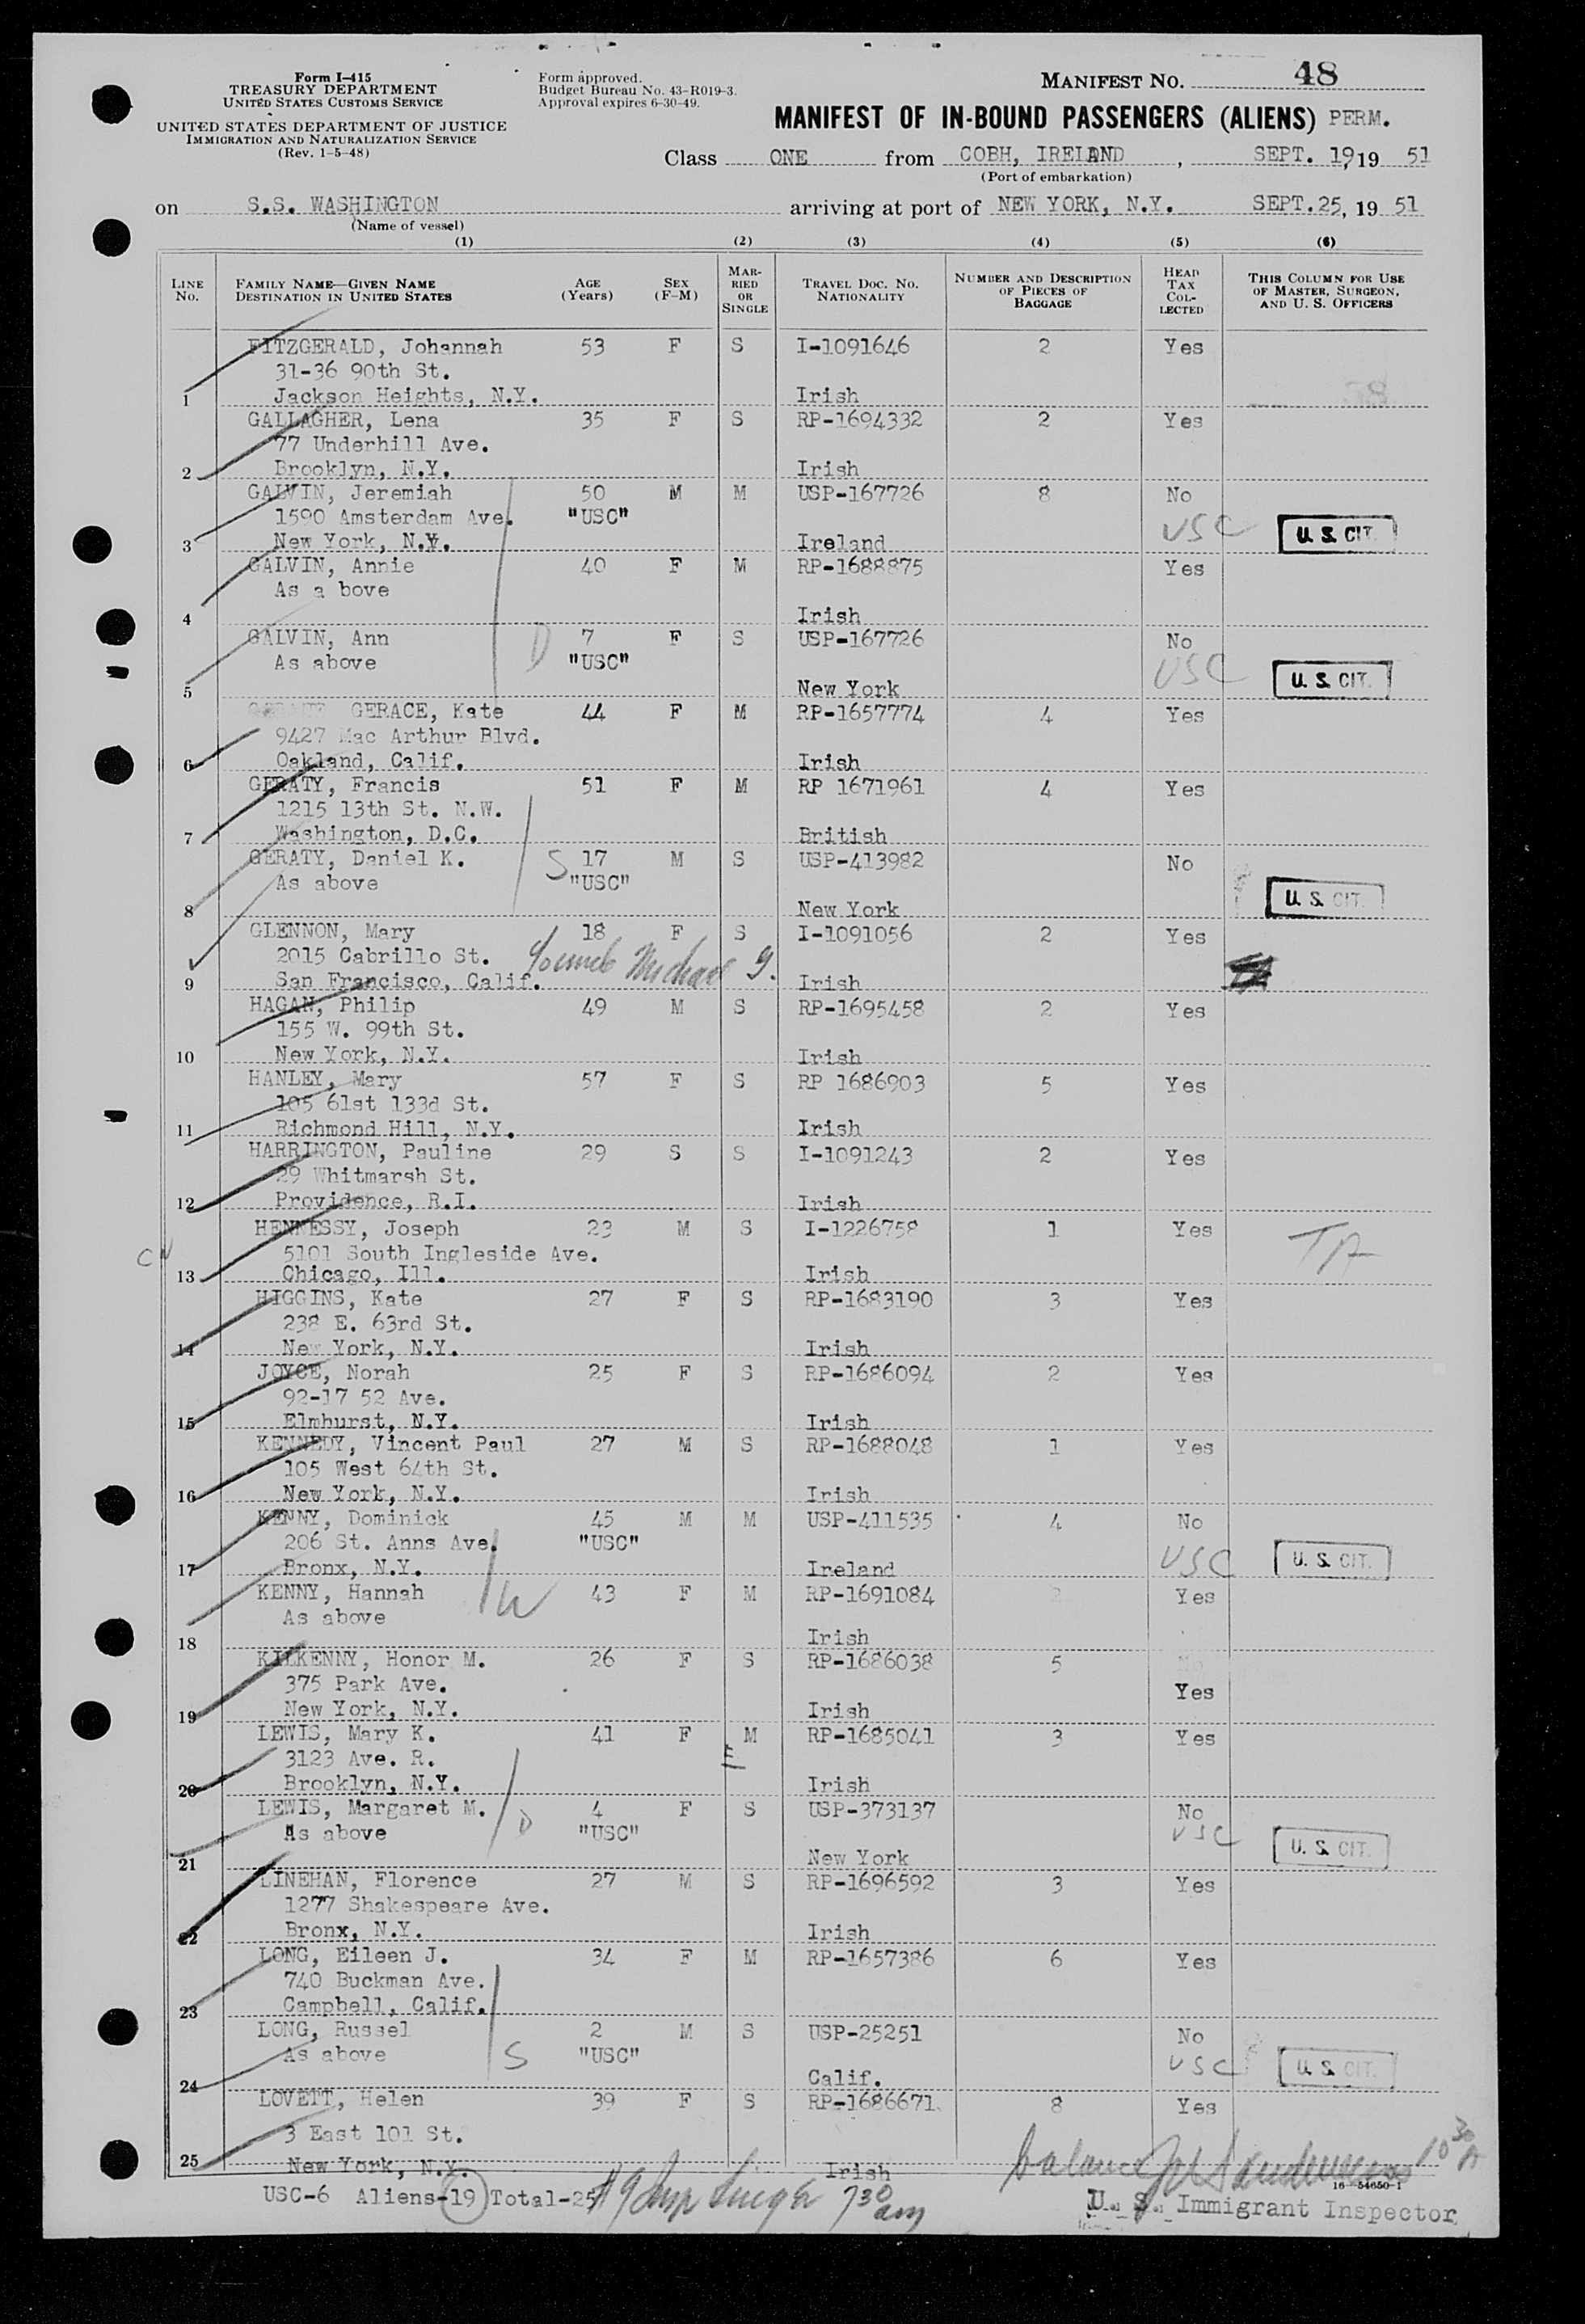 Form I-415
TREASURY DEPARTMENT
UNITED STATES CUSTOMS SERVICE
UNITED STATES DEPARTMENT OF JUSTICE
IMMIGRATION AND NATURALIZATION SERVICE
(Rev. 1-5-48)
Form approved.
Budget Bureau No. 43-R019-3.
Approval expires 6-30-49.
MANIFEST NO. 48
MANIFEST OF IN-BOUND PASSENGERS (ALIENS) PERM.
Class ONE from COBH, IRELAND, SEPT. 19, 19 51
(Port of embarkation)
on S.S. WASHINGTON arriving at port of NEW YORK, N.Y. SEPT.25, 19 51
(Name of vessel)
(1) (2) (3) (4) (5) (6)
LINE NO. FAMILY NAME—GIVEN NAME DESTINATION IN UNITED STATES AGE (Years) SEX (F-M) MARRIED OR SINGLE TRAVEL DOC. NO. NATIONALITY NUMBER AND DESCRIPTION OF PIECES OF BAGGAGE HEAD TAX COLLECTED THIS COLUMN FOR USE OF MASTER, SURGEON, AND U. S. OFFICERS
FITZGERALD, Johannah 53 F S I-1091646 2 Yes
31-36 90th St.
1 Jackson Heights, N.Y. Irish
GALLAGHER, Lena 35 F S RP-1694332 2 Yes
77 Underhill Ave.
2 Brooklyn, N.Y. Irish
GALVIN, Jeremiah 50 M M USP-167726 8 No
1590 Amsterdam Ave. "USC" USC U. S. CIT.
3 New York, N.Y. Ireland
GALVIN, Annie 40 F M RP-1688875 Yes
As a bove
4 Irish
GALVIN, Ann D 7 F S USP-167726 No
As above "USC" USC U. S. CIT.
5 New York
GERACE, Kate 44 F M RP-1657774 4 Yes
9427 Mac Arthur Blvd.
6 Oakland, Calif. Irish
GERATY, Francis 51 F M RP 1671961 4 Yes
1215 13th St. N.W.
7 Washington, D.C. British
GERATY, Daniel K. S 17 M S USP-413982 No
As above "USC" U. S. CIT.
8 New York
GLENNON, Mary 18 F S I-1091056 2 Yes
2015 Cabrillo St. Michael G.
9 San Francisco, Calif. Irish
HAGAN, Philip 49 M S RP-1695458 2 Yes
155 W. 99th St.
10 New York, N.Y. Irish
HANLEY, Mary 57 F S RP 1686903 5 Yes
105 61st 133d St.
11 Richmond Hill, N.Y. Irish
HARRINGTON, Pauline 29 S S I-1091243 2 Yes
29 Whitmarsh St.
12 Providence, R.I. Irish
HENNESSY, Joseph 23 M S I-1226758 1 Yes TA
5101 South Ingleside Ave.
13 Chicago, Ill. Irish
HIGGINS, Kate 27 F S RP-1683190 3 Yes
238 E. 63rd St.
14 New York, N.Y. Irish
JOYCE, Norah 25 F S RP-1686094 2 Yes
92-17 52 Ave.
15 Elmhurst, N.Y. Irish
KENNEDY, Vincent Paul 27 M S RP-1688048 1 Yes
105 West 64th St.
16 New York, N.Y. Irish
KENNY, Dominick 45 M M USP-411535 4 No
206 St. Anns Ave. "USC" USC U. S. CIT.
17 Bronx, N.Y. Ireland
KENNY, Hannah W 43 F M RP-1691084 Yes
As above
18 Irish
KILKENNY, Honor M. 26 F S RP-1686038 5
375 Park Ave. Yes
19 New York, N.Y. Irish
LEWIS, Mary K. 41 F M RP-1685041 3 Yes
3123 Ave. R.
20 Brooklyn, N.Y. Irish
LEWIS, Margaret M. D 4 F S USP-373137 No
As above "USC" USC U. S. CIT.
21 New York
LINEHAN, Florence 27 M S RP-1696592 3 Yes
1277 Shakespeare Ave.
22 Bronx, N.Y. Irish
LONG, Eileen J. 34 F M RP-1657386 6 Yes
740 Buckman Ave.
23 Campbell, Calif.
LONG, Russel 2 M S USP-25251 No
As above S "USC" USC U. S. CIT.
24 Calif.
LOVETT, Helen 39 F S RP-1686671 8 Yes
3 East 101 St.
25 New York, N.Y. Irish
balance 10 30 A
USC-6 Aliens-19 Total-25 7 30 am
16-54650-1
U. S. Immigrant Inspector